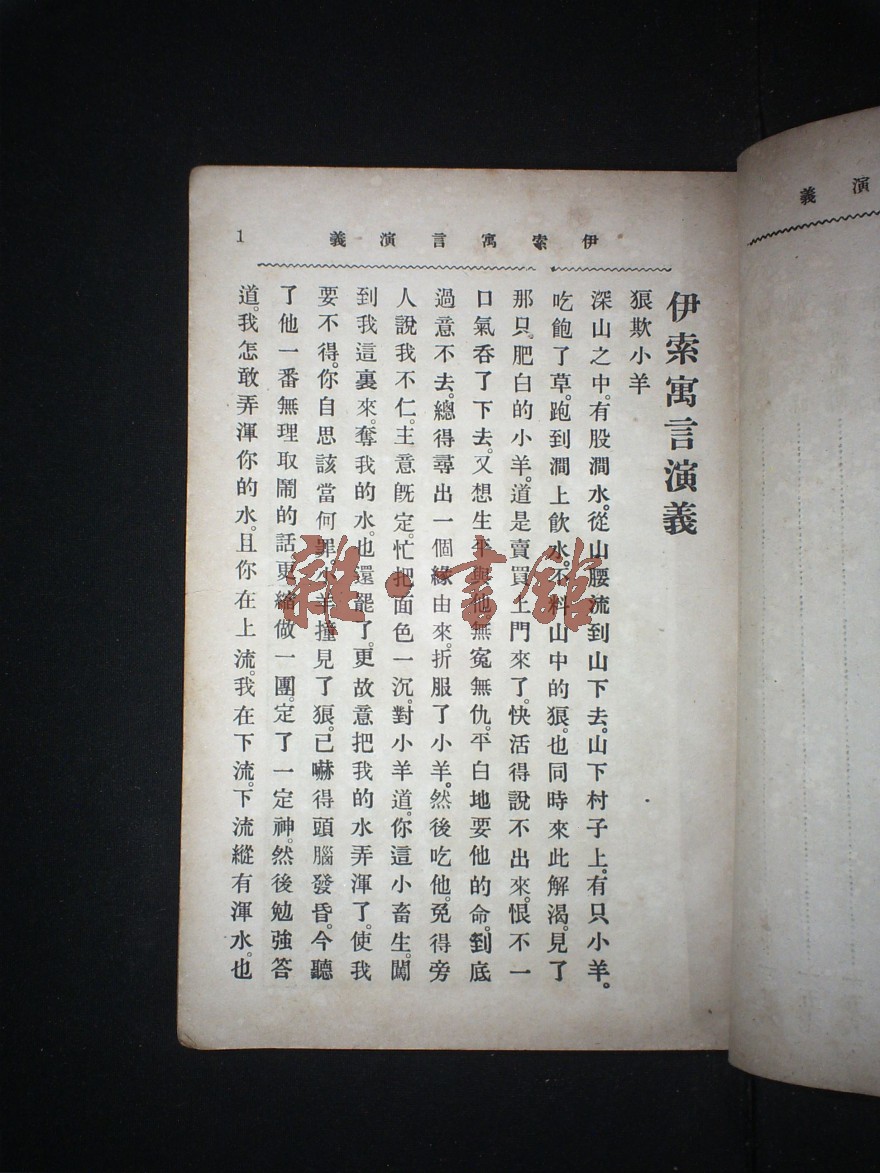 伊索寓言演義
1
伊索寓言演義
狼欺小羊
深山之中。有股澗水。從山腰流到山下去。山下村子上。有只小羊。
吃飽了草。跑到澗上飲水。不料山中的狼。也同時來此解渴。見了
那只肥白的小羊。道是賣買上門來了。快活得說不出來。恨不一
口氣吞了下去。又想生平與他無寃無仇。平白地要他的命。到底
過意不去。總得尋出一個緣由來。折服了小羊。然後吃他。免得旁
人說我不仁。主意旣定。忙把面色一沉。對小羊道。你這小畜生。闖
到我這裏來。奪我的水。也還罷了。更故意把我的水弄渾了。使我
要不得。你自思該當何罪。小羊撞見了狼。已嚇得頭腦發昏。今聽
了他一番無理取鬧的話。更縮做一團。定了一定神。然後勉強答
道。我怎敢弄渾你的水。且你在上流。我在下流。下流縱有渾水。也
演義
雜·書館